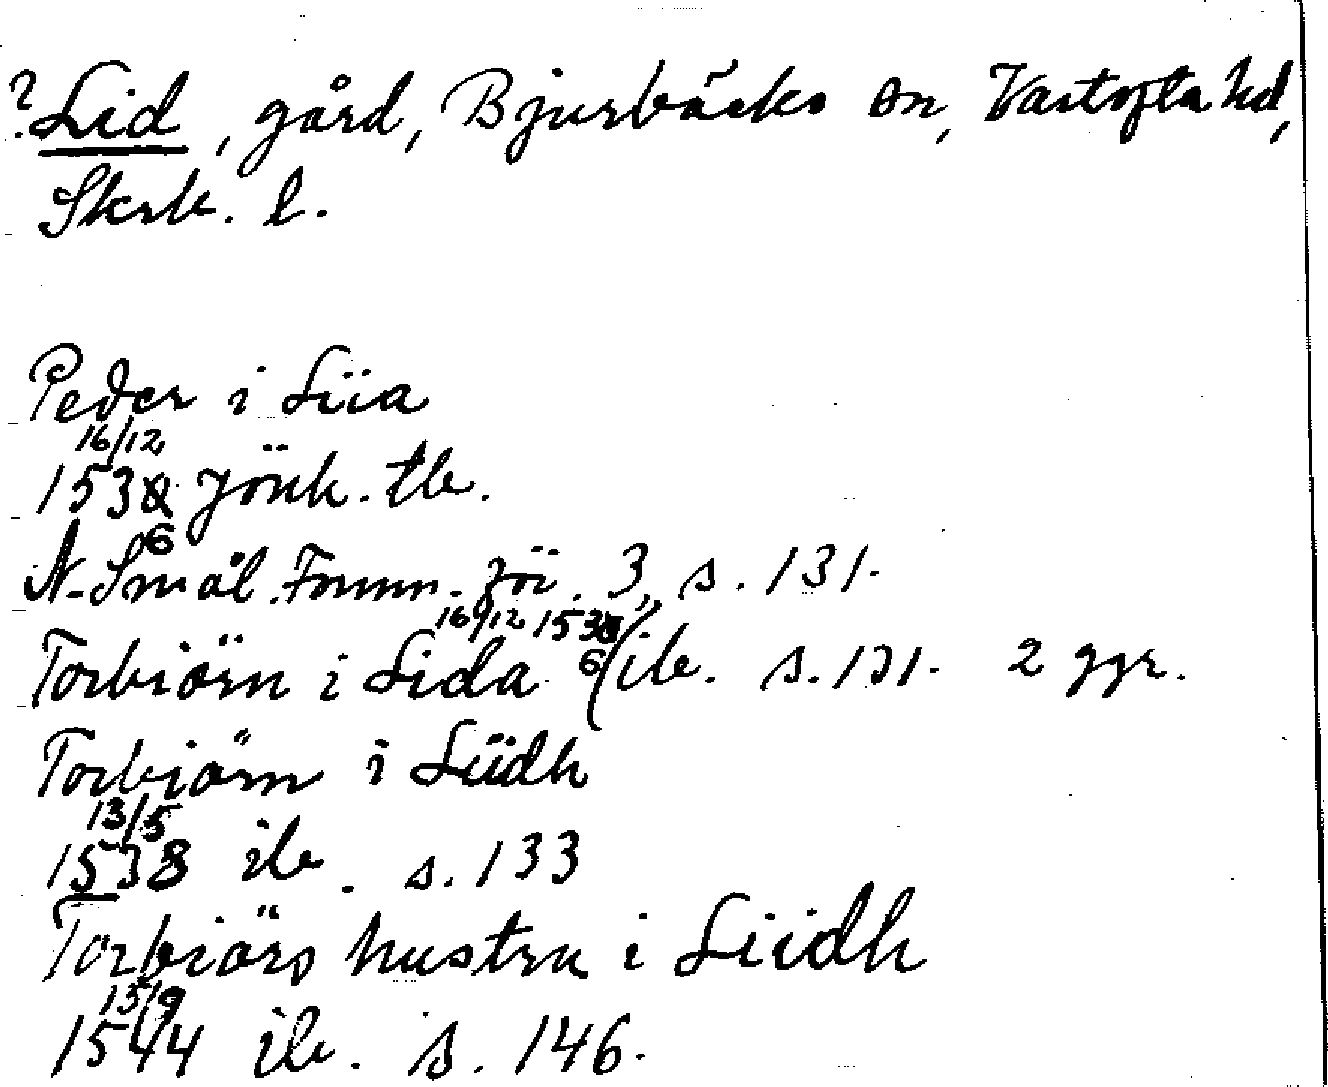 ? Lid, gård, Bjurbäcks sn, Vartofta hd,
Skrb. l.
Peder i Liia
16/12
1536 Jönk. tb.
N. Smål. Fornm. för. 3, s. 131.
16/12 1536
Torbiörn i Lida (ib. s. 131. 2 ggr.
Torbiörn i Liidh
13/5
1538 ib. s. 133
Torbiörs hustru i Liidh
15/9
1544 ib. s. 146.